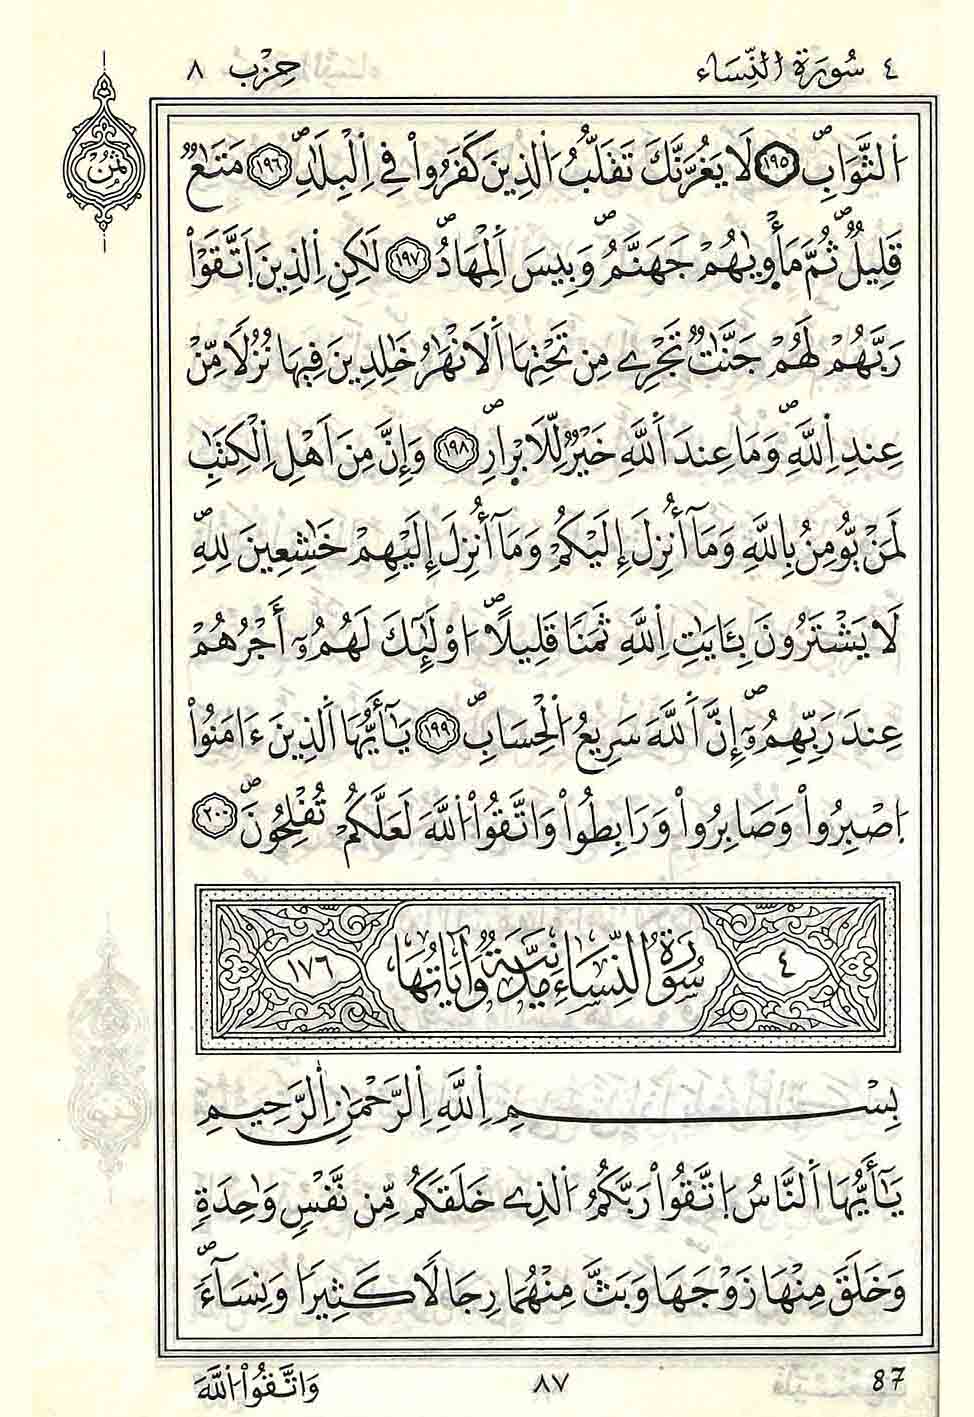 ٤ سُورَةُ النِّسَاء حِزْب ٨
اَ۬لثَّوَابِۖ ١٩٥ لَا يَغُرَّنَّكَ تَقَلُّبُ اُ۬لذِينَ كَفَرُواْ فِے اِ۬لْبِلَٰدِۖ ١٩٦ مَتَٰعٞ
ثمن
قَلِيلٞۖ ثُمَّ مَأْو۪يٰهُمْ جَهَنَّمُۖ وَبِيسَ اَ۬لْمِهَادُۖ ١٩٧ لَٰكِنِ اِ۬لذِينَ اَ۪تَّقَوْاْ
رَبَّهُمْ لَهُمْ جَنَّٰتٞ تَجْرِے مِن تَحْتِهَا اَ۬لَانْهَٰرُ خَٰلِدِينَ فِيهَا نُزُلٗا مِّنْ
عِندِ اِ۬للَّهِۖ وَمَا عِندَ اَ۬للَّهِ خَيْرٞ لِّلَابْر۪ارِۖ ١٩٨ وَإِنَّ مِنَ اَهْلِ اِ۬لْكِتَٰبِ
لَمَنْ يُّومِنُ بِاللَّهِ وَمَآ أُنزِلَ إِلَيْكُمْ وَمَآ أُنزِلَ إِلَيْهِمْ خَٰشِعِينَ لِلهِۖ
لَا يَشْتَرُونَ بِـَٔايَٰتِ اِ۬للَّهِ ثَمَنٗا قَلِيلًاۖ ا۟وْلَٰٓئِكَ لَهُمُۥٓ أَجْرُهُمْ
عِندَ رَبِّهِمُۥٓۖ إِنَّ اَ۬للَّهَ سَرِيعُ اُ۬لْحِسَابِۖ ١٩٩ يَٰٓأَيُّهَا اَ۬لذِينَ ءَامَنُواْ
اُ۪صْبِرُواْ وَصَابِرُواْ وَرَابِطُواْ وَاتَّقُواْ اُ۬للَّهَ لَعَلَّكُمْ تُفْلِحُونَۖ ٢٠٠
٤ سُورَةُ النِّسَاءِ مَدَنِيَّةٌ وَآيَاتُهَا ١٧٦
بِسْمِ اِ۬للَّهِ اِ۬لرَّحْمَٰنِ اِ۬لرَّحِيمِ
يَٰٓأَيُّهَا اَ۬لنَّاسُ اُ۪تَّقُواْ رَبَّكُمُ اُ۬لذِے خَلَقَكُم مِّن نَّفْسٖ وَٰحِدَةٖ
وَخَلَقَ مِنْهَا زَوْجَهَا وَبَثَّ مِنْهُمَا رِجَالٗا كَثِيرٗا وَنِسَآءٗۖ
87 ٨٧ وَاتَّقُواْ اُ۬للَّهَ